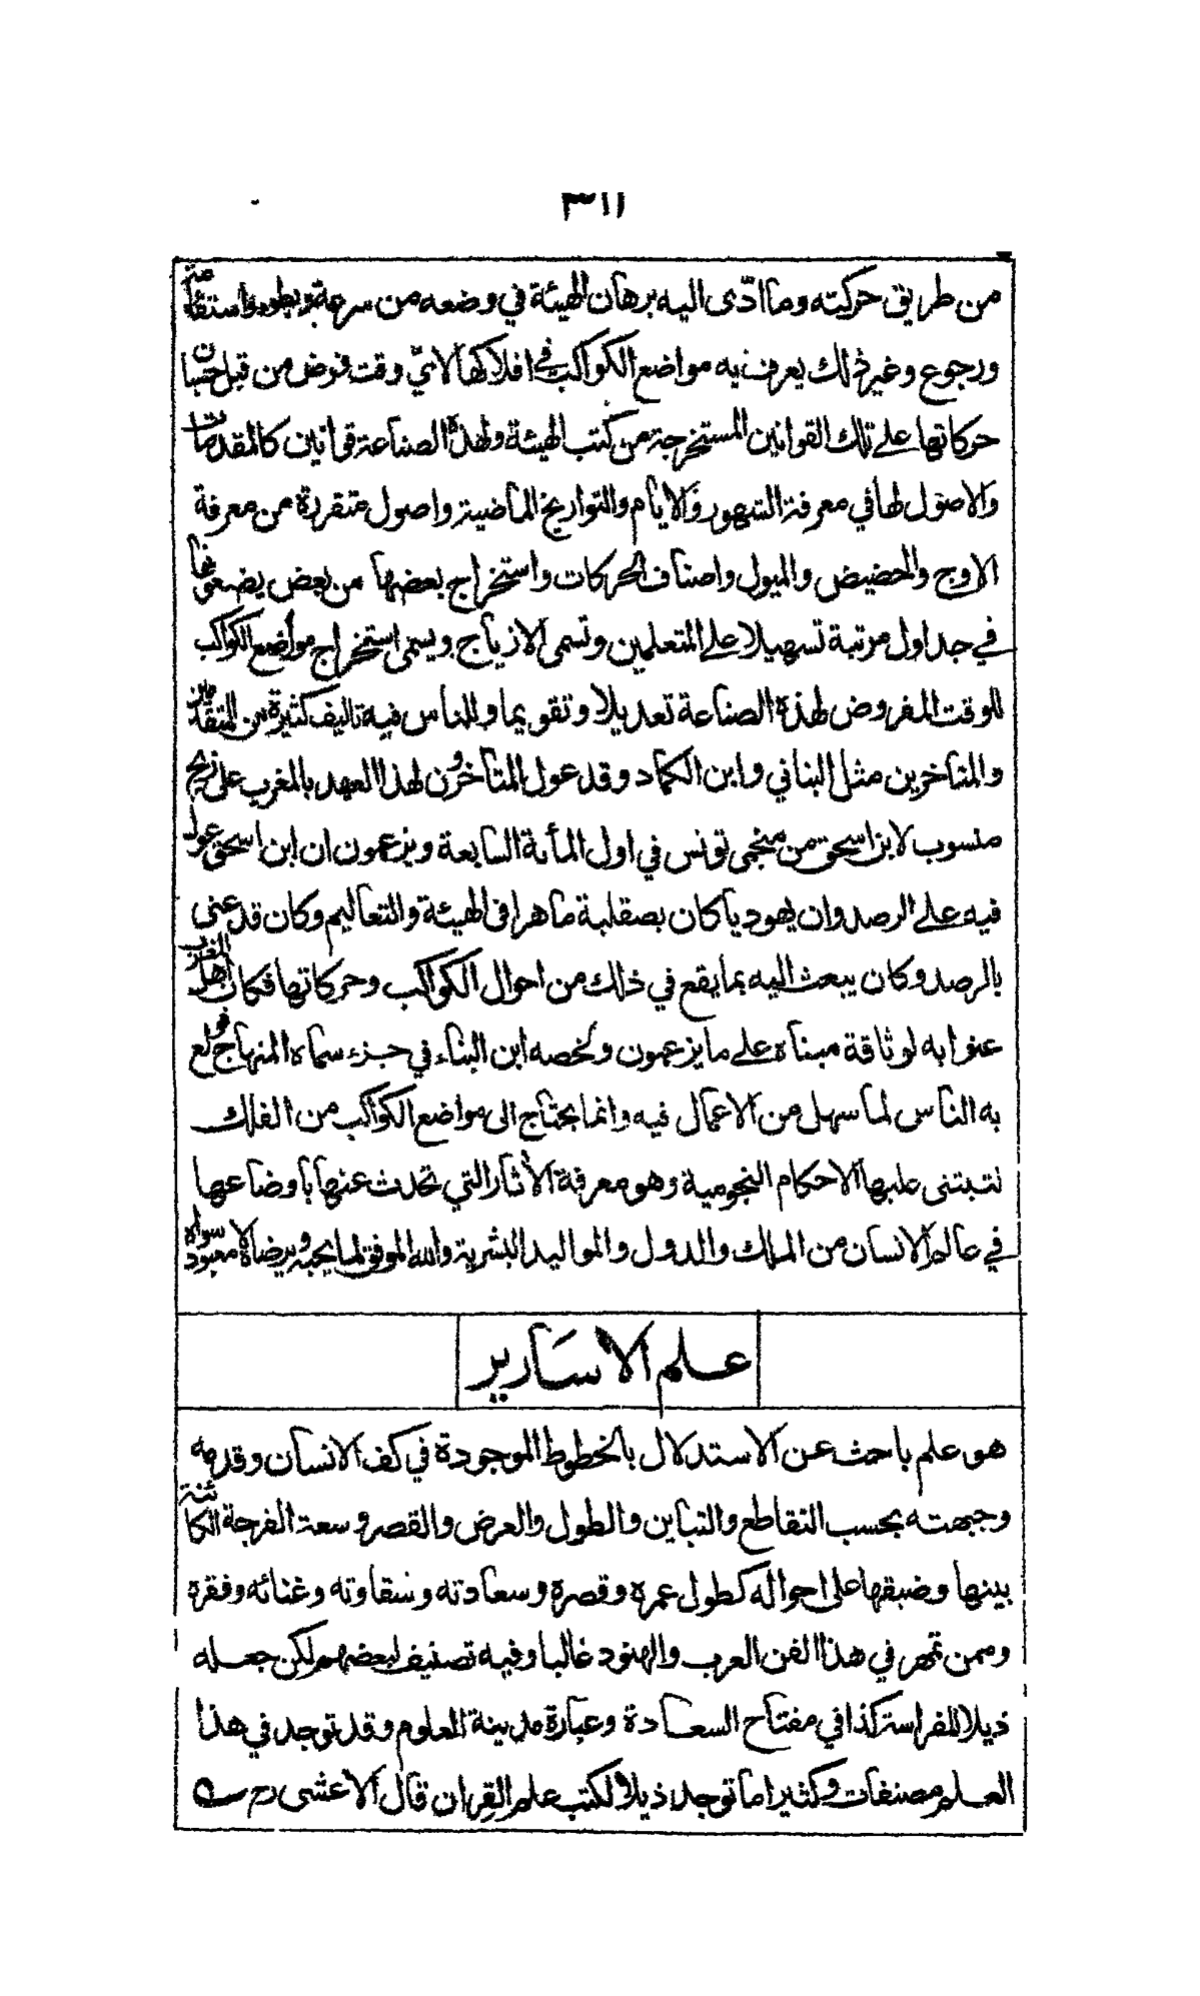 ٣١١
من طريق حركته وما ادّى اليه برهان الهيئة في وضعه من سرعة وبطوء واستقامة
ورجوع وغير ذلك يعرف به مواضع الكواكب في افلاكها لايّ وقت فرض من قبل حسبان
حركاتها على تلك القوانين المستخرجة من كتب الهيئة ولهذه الصناعة قوانين كالمقدمات
والاصول لها في معرفة الشهور والايام والتواريخ الماضية واصول متقررة من معرفة
الاوج والحضيض والميول واصناف الحركات واستخراج بعضها من بعض يضعونها
في جداول مرتبة تسهيلا على المتعلمين وتسمى الازياج ويسمى استخراج مواضع الكواكب
للوقت المفروض لهذه الصناعة تعديلا وتقويما وللناس فيه تاليف كثيرة من المتقدمين
والمتاخرين مثل البناني وابن الكماد وقد عول المتاخرون لهذا العهد بالمغرب على زيج
منسوب لابن اسحق من منجمي تونس في اول المأية السابعة ويزعمون ان ابن اسحق عول
فيه على الرصد وان يهوديا كان بصقلية ماهرا في الهيئة والتعاليم وكان قد عنى
بالرصد وكان يبعث اليه بما يقع في ذلك من احوال الكواكب وحركاتها فكان اهل المغرب
عنوا به لوثاقة مبناه على ما يزعمون ولخصه ابن البناء في جزء سماه المنهاج فولع
به الناس لما سهل من الاعمال فيه وانما يحتاج الى مواضع الكواكب من الفلك
لتبتنى عليها الاحكام النجومية وهو معرفة الأثار التي تحدث عنها باوضاعها
في عالم الانسان من الملك والدول والمواليد البشرية والله الموفق لما يحبه ويرضاه لا معبود سواه
علم الاسارير
هو علم باحث عن الاستدلال بالخطوط الموجودة في كف الانسان وقدمه
وجبهته بحسب التقاطع والتباين والطول والعرض والقصر وسعة الفرجة الكائنة
بينها وضيقها على احواله كطول عمره وقصره وسعادته وشقاوته وغنائه وفقره
وممن تمهر في هذا الفن العرب والهنود غالبا وفيه تصنيف لبعضهم لكن جعله
ذيلا للفراسة كذا في مفتاح السعادة وعبارة مدينة العلوم وقد توجد في هذا
العلم مصنفات وكثيرا ما توجد ذيلا لكتب علم القران قال الاعشى رح